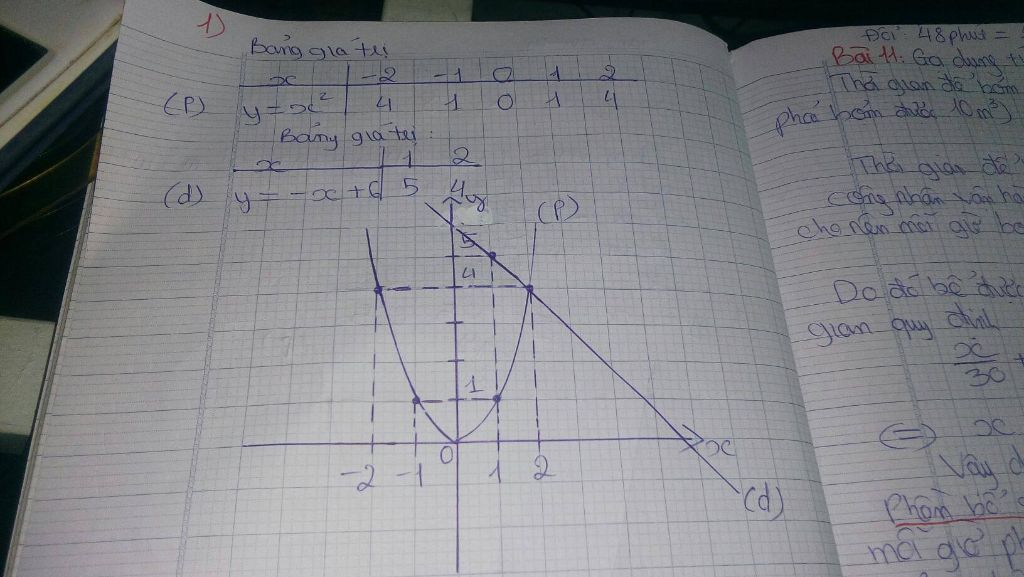 1)
Bảng giá trị
x -2 -1 0 1 2
(P) y = x² 4 1 0 1 4
Bảng giá trị :
x 1 2
(d) y = -x + 6 5 4
y
(P)
5
4
1
0
x
-2 -1 1 2
(d)
Đổi: 48 phút =
Bài 11: Gọi dung
Thời gian để bơm
phải bơm được 10m³)
Thời gian để
công nhân vận hà
cho nên mỗi giờ bơ
Do đó bể được
gian quy định
x
30
<=> x
Vậy d
Phần bể
mỗi giờ ph